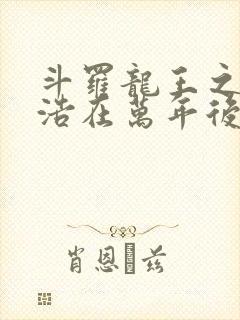 斗羅龍王之
浩在萬年後
肖恩·兹